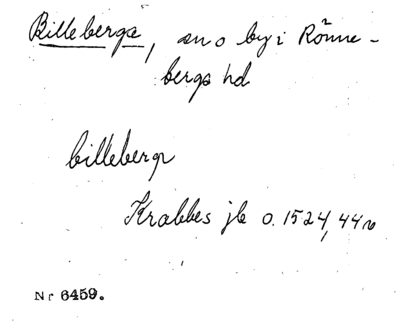 Billeberga, sn o by i Rönne-
bergs hd
billebergr
Krabbes jb o. 1524, 44 r
Nr 6459.